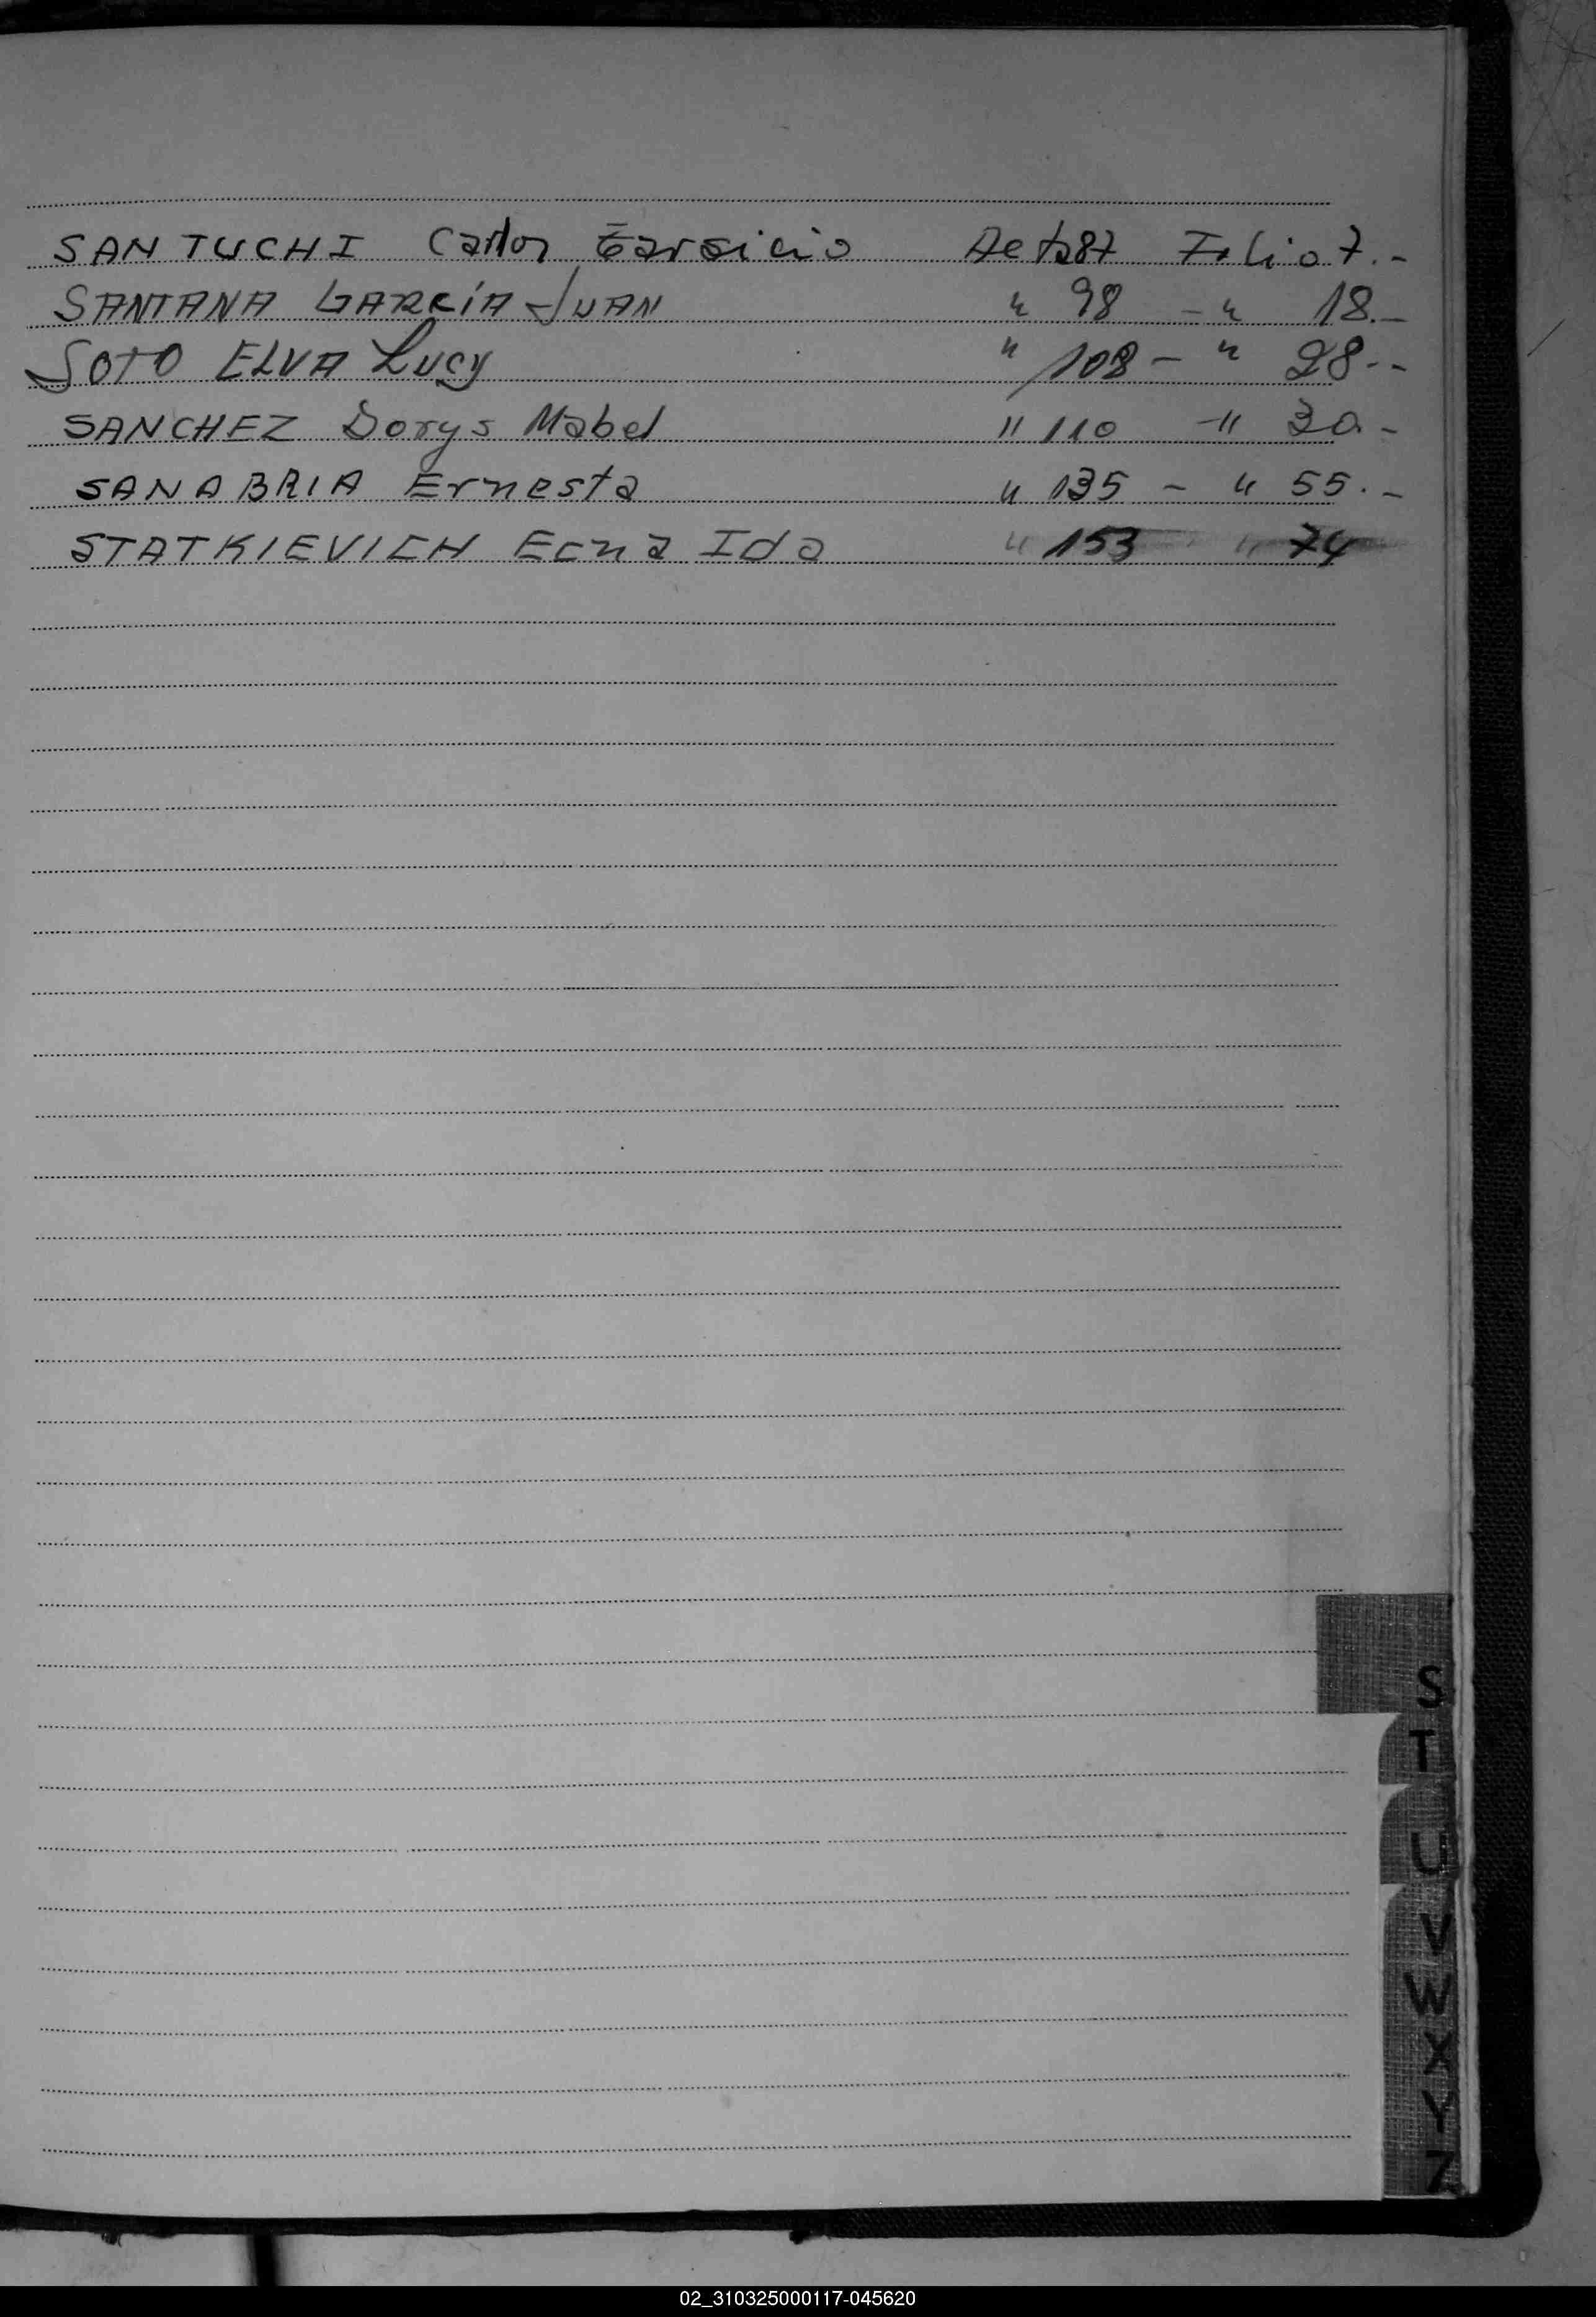 SANTUCHI Carlos Tarsicio Acta 87 Folio 7.-
SANTANA GARCÍA JUAN " 98 - " 18.-
SOTO ELVA Lucy " 108 - " 28.-
SANCHEZ Dorys Mabel " 110 - " 30.-
SANABRIA Ernesta " 135 - " 55.-
STATKIEVICH Ecna Ida " 153 " 74
S
T
U
V
W
X
Y
Z
02_310325000117-045620